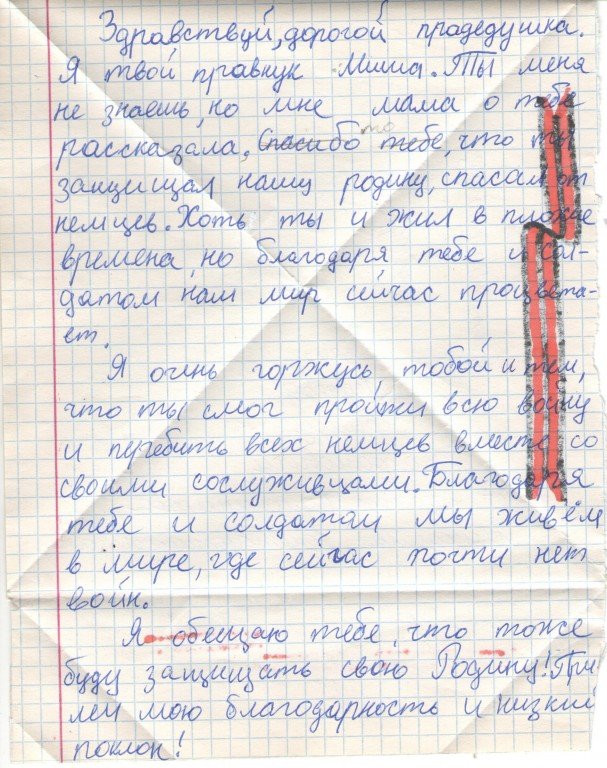 Здравствуй, дорогой прадедушка.
Я твой правнук Миша. Ты меня
не знаешь, но мне мама о тебе
рассказала. Спасибо тебе, что ты
защищал нашу родину, спасал от
немцев. Хоть ты и жил в плохие
времена, но благодаря тебе и сол-
датом нам мир сейчас процвета-
ет.
Я очень горжусь, тобой и тем,
что ты смог пройти всю войну
и перебить всех немцев вместе со
своими сослуживцами. Благодаря
тебе и солдатам мы живём
в мире, где сейчас почти нет
войн.
Я обещаю тебе, что тоже
буду защищать свою Родину! При
ми мою благодарность и низкий
поклон!